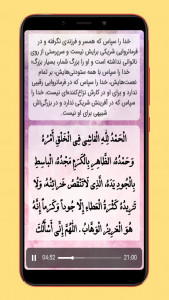 خدا را سپاس که همسر و فرزندی نگرفته و در
فرمانروایی شریکی برایش نیست و سرپرستی از روی
ناتوانی نداشته است و او را بزرگ شمار، بسیار بزرگ؛
خدا را سپاس با همه ستودنی‌هایش، بر تمام
نعمت‌هایش، خدا را سپاس که در فرمانروایی رقیبی
ندارد و برای او در کارش نزاع‌کننده‌ای نیست، خدا را
سپاس که در آفرینش شریکی ندارد و در بزرگی‌اش
شبیهی برای او نیست.
الْحَمْدُ لِلّهِ الْفاشِي فِي الْخَلْقِ أَمْرُهُ
وَحَمْدُهُ، الظَّاهِرِ بِالْكَرَمِ مَجْدُهُ، الْباسِطِ
بِالْجُودِ يَدَهُ، الَّذِي لَاتَنْقُصُ خَزائِنُهُ، وَلَا
تَزِيدُهُ كَثْرَةُ الْعَطاءِ إِلّا جُوداً وَكَرَماً إِنَّهُ
هُوَ الْعَزِيزُ الْوَهَّابُ. اللّهُمَّ إِنِّي أَسْأَلُكَ
04:52 21:00